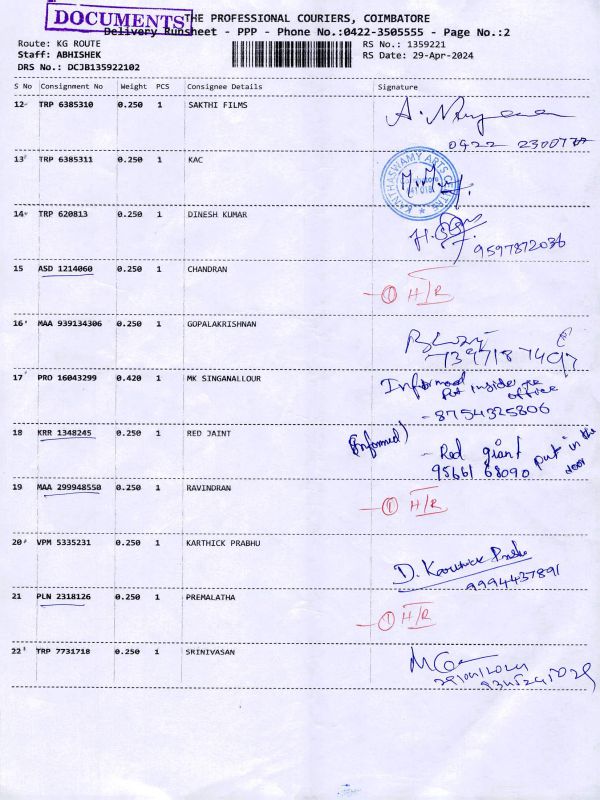 DOCUMENTS
THE PROFESSIONAL COURIERS, COIMBATORE
Delivery Runsheet - PPP - Phone No.:0422-3505555 - Page No.:2
Route: KG ROUTE
RS No.: 1359221
Staff: ABHISHEK
RS Date: 29-Apr-2024
DRS No.: DCJB135922102
S No Consignment No Weight PCS Consignee Details Signature
12 TRP 6385310 0.250 1 SAKTHI FILMS
0422 2300777
13 TRP 6385311 0.250 1 KAC
KANTHASWAMY ARTS CENTRE
14 TRP 620813 0.250 1 DINESH KUMAR
9597872036
15 ASD 1214060 0.250 1 CHANDRAN
① H/R
16 MAA 939134306 0.250 1 GOPALAKRISHNAN
7397187497
17 PRO 16043299 0.420 1 MK SINGANALLOUR
Informed
Put inside the
office
- 8754325806
18 KRR 1348245 0.250 1 RED JAINT
(Informed)
- Red giant put in the
9566168090 door
19 MAA 299948550 0.250 1 RAVINDRAN
① H/R
20 VPM 5335231 0.250 1 KARTHICK PRABHU
D. Karthick Prabhu
9994437891
21 PLN 2318126 0.250 1 PREMALATHA
① H/R
22 TRP 7731718 0.250 1 SRINIVASAN
29/04/2024